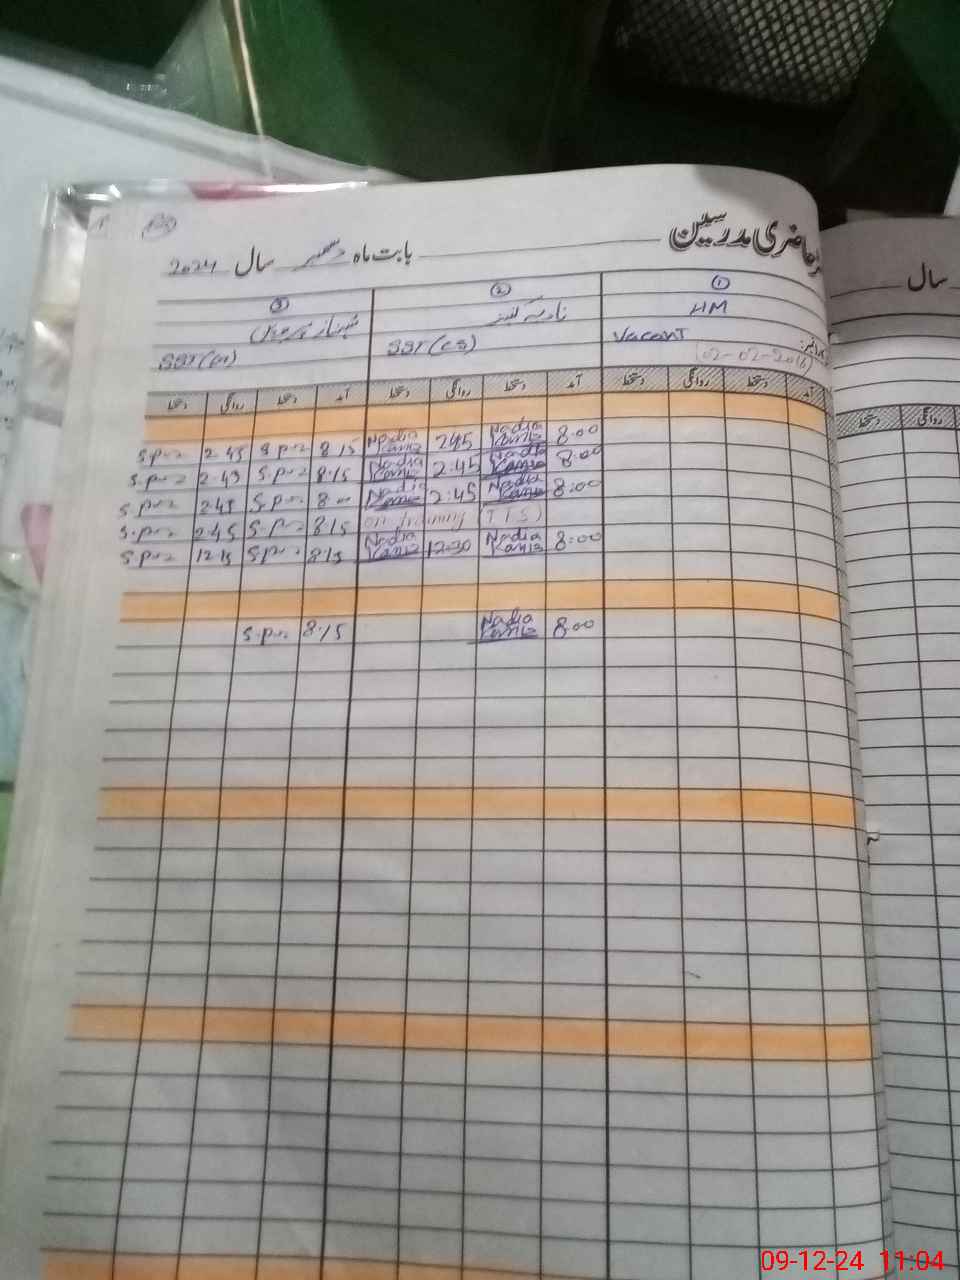 حاضری مدرسین بابت ماہ دسمبر سال 2024
سال
① ② ③
HM نادیہ کنیز شہناز
Vacant SST (CS) SST (M)
02-02-2016
آمد دستخط روانگی دستخط آمد دستخط روانگی دستخط آمد دستخط روانگی دستخط
روانگی دستخط
8:00 Nadia Kaniz 2:45 Nadia Kaniz 8:15 S.P 2:45 S.P
8:00 Nadia Kaniz 2:45 Nadia Kaniz 8:15 S.P 2:45 S.P
8:00 Nadia Kaniz 2:45 Nadia Kaniz 8:00 S.P 2:45 S.P
on training (TTS) 8:15 S.P 2:45 S.P
8:00 Nadia Kaniz 12:30 Nadia Kaniz 8:15 S.P 12:15 S.P
8:00 Nadia Kaniz 8:15 S.P
09-12-24 11:04